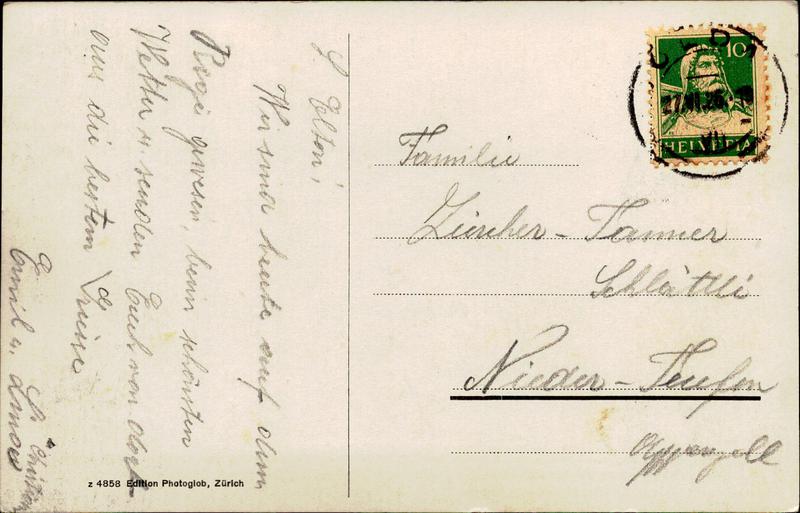 L. Eltern!
Wir sind heute auf dem
Rigi gewesen, beim schönsten
Wetter u. senden Euch von dort
aus die besten Grüsse
Emil u.
Familie
Zürcher-Tanner
Schlättli
Nieder-Teufen
Appenzell
10
27.VI.26.
VII
HELVETIA
z 4858 Edition Photoglob, Zürich